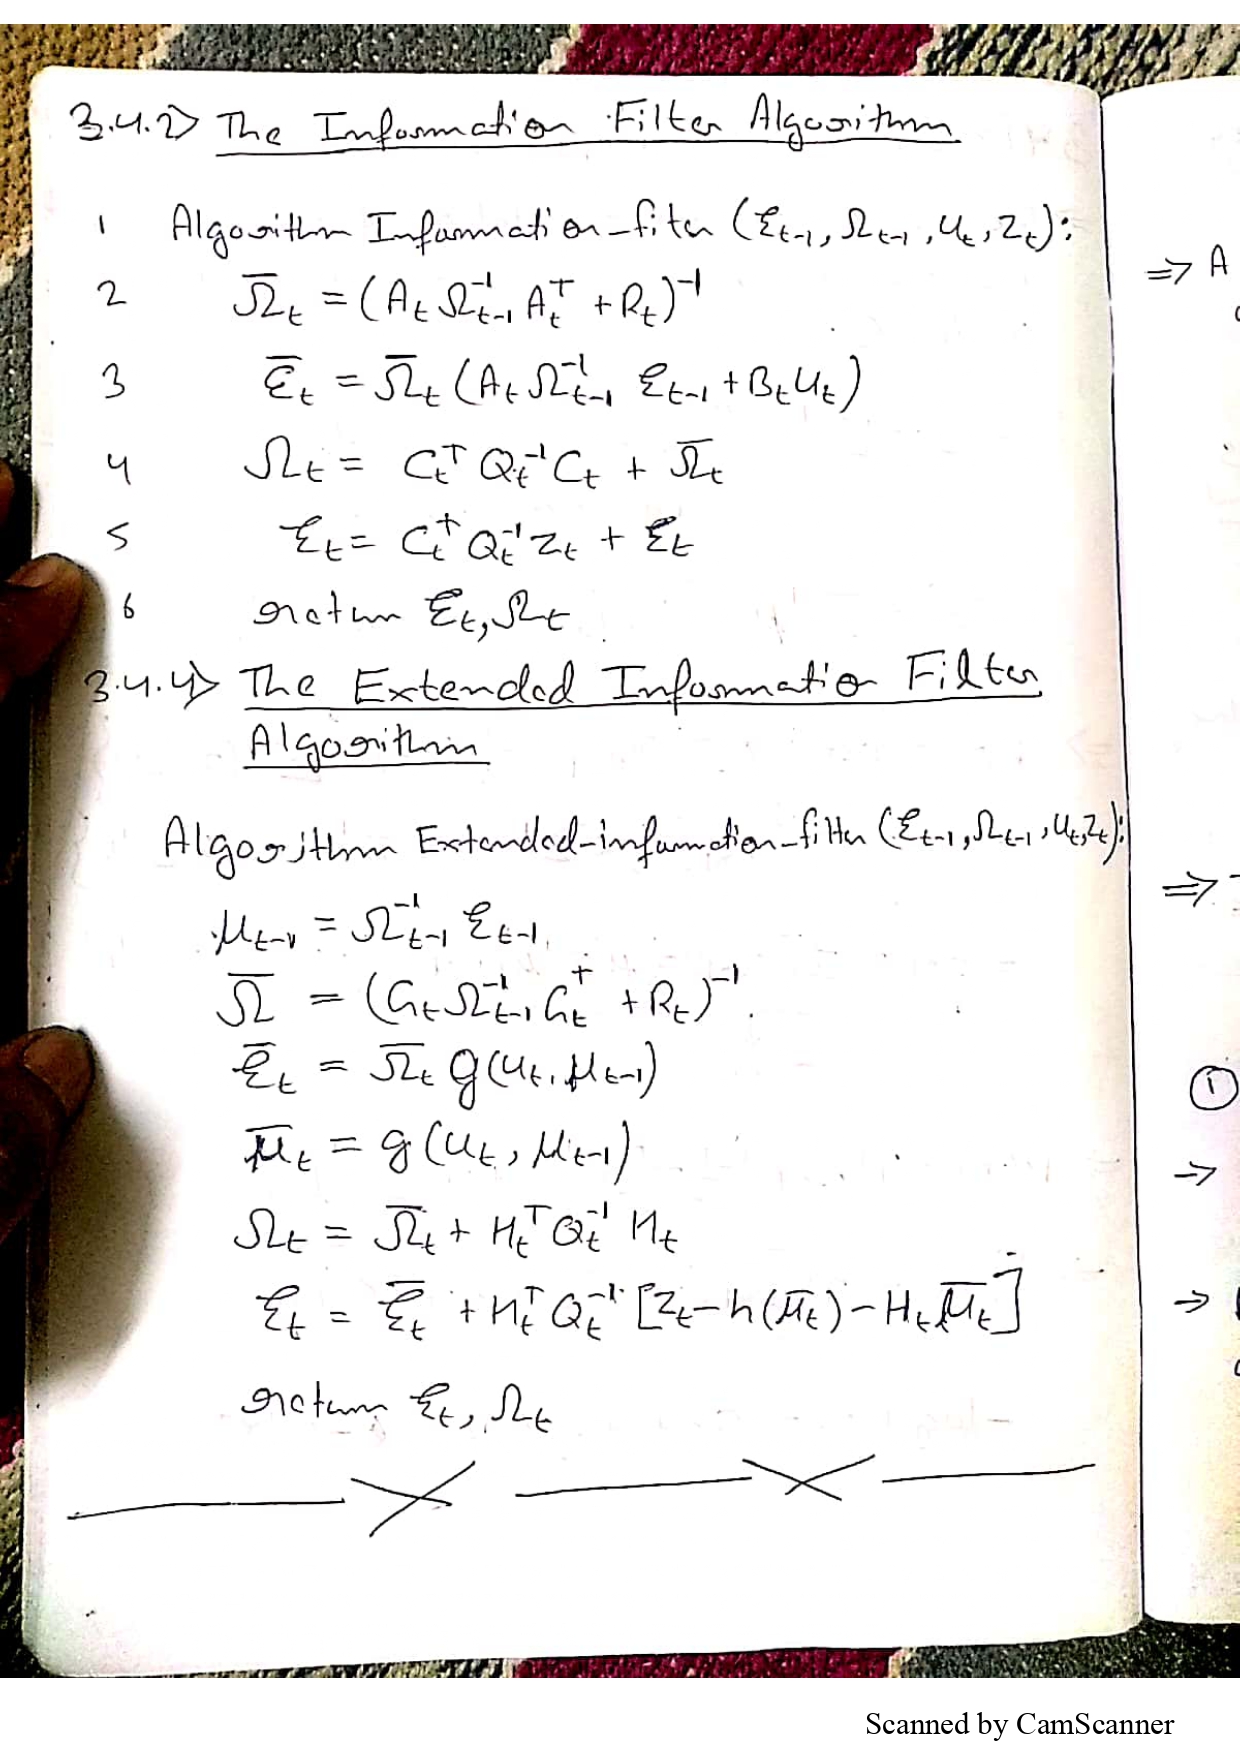 3.4.2> The Information Filter Algorithm
1 Algorithm Information-fiter (ξt-1, Ωt-1, ut, zt):
2 Ω̄t = (At Ωt-1⁻¹ Atᵀ + Rt)⁻¹
3 ξ̄t = Ω̄t (At Ωt-1⁻¹ ξt-1 + Bt ut)
4 Ωt = Ctᵀ Qt⁻¹ Ct + Ω̄t
5 ξt = Ctᵀ Qt⁻¹ zt + ξ̄t
6 return ξt, Ωt
3.4.4> The Extended Information Filter
Algorithm
Algorithm Extended-information-filter (ξt-1, Ωt-1, ut, zt):
μt-1 = Ωt-1⁻¹ ξt-1
Ω̄ = (Gt Ωt-1⁻¹ Gtᵀ + Rt)⁻¹.
ξ̄t = Ω̄t g(ut, μt-1)
μ̄t = g(ut, μt-1)
Ωt = Ω̄t + Htᵀ Qt⁻¹ Ht
ξt = ξ̄t + Htᵀ Qt⁻¹ [zt - h(μ̄t) - Ht μ̄t]
return ξt, Ωt
⇒ A
⇒
①
→
→
Scanned by CamScanner